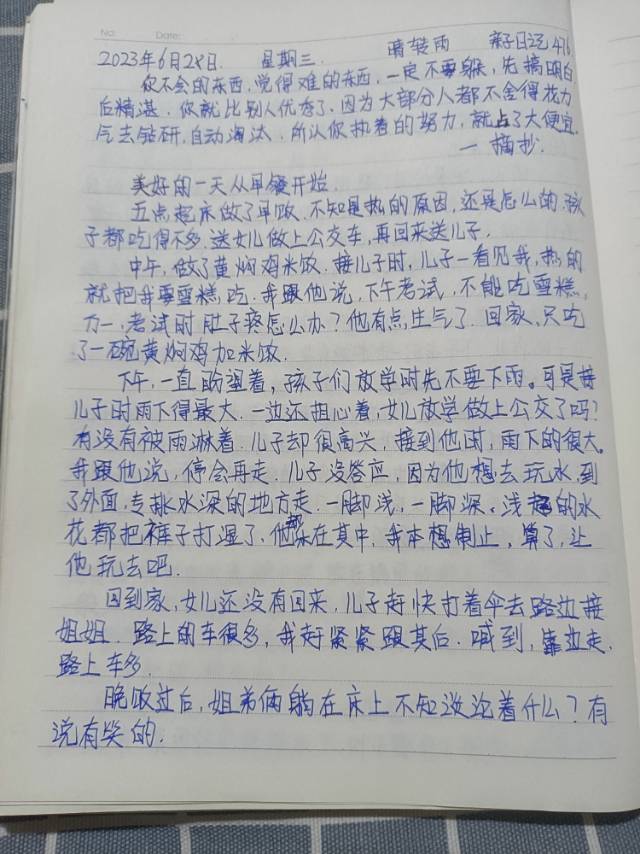 No:
Date:
2023年6月28日 星期三 晴转雨 亲子日记416
你不会的东西,觉得难的东西,一定不要躲,先搞明白
后精湛,你就比别人优秀了.因为大部分人都不舍得花力
气去钻研,自动淘汰,所以你执着的努力,就占了大便宜.
一摘抄.
美好的一天从早餐开始.
五点起床做了早饭,不知是热的原因,还是怎么的,孩
子都吃得不多.送女儿做上公交车,再回来送儿子.
中午,做了黄焖鸡米饭.接儿子时,儿子一看见我,热的
就把我要雪糕吃.我跟他说,下午考试,不能吃雪糕,
万一,考试时肚子疼怎么办?他有点生气了.回家,只吃
了一碗黄焖鸡加米饭.
下午,一直盼望着,孩子们放学时先不要下雨。可是接
儿子时雨下得最大.一边还担心着,女儿放学做上公交了吗?
有没有被雨淋着.儿子却很高兴,接到他时,雨下的很大.
我跟他说,停会再走.儿子没答应,因为他想去玩水,到
了外面,专挑水深的地方走.一脚浅,一脚深.浅起的水
花都把裤子打湿了.他却乐在其中,我本想制止,算了,让
他玩去吧.
回到家,女儿还没有回来.儿子赶快打着伞去路边接
姐姐.路上的车很多,我赶紧紧跟其后.喊到,靠边走.
路上车多.
晚饭过后,姐弟俩躺在床上不知谈论着什么?有
说有笑的.